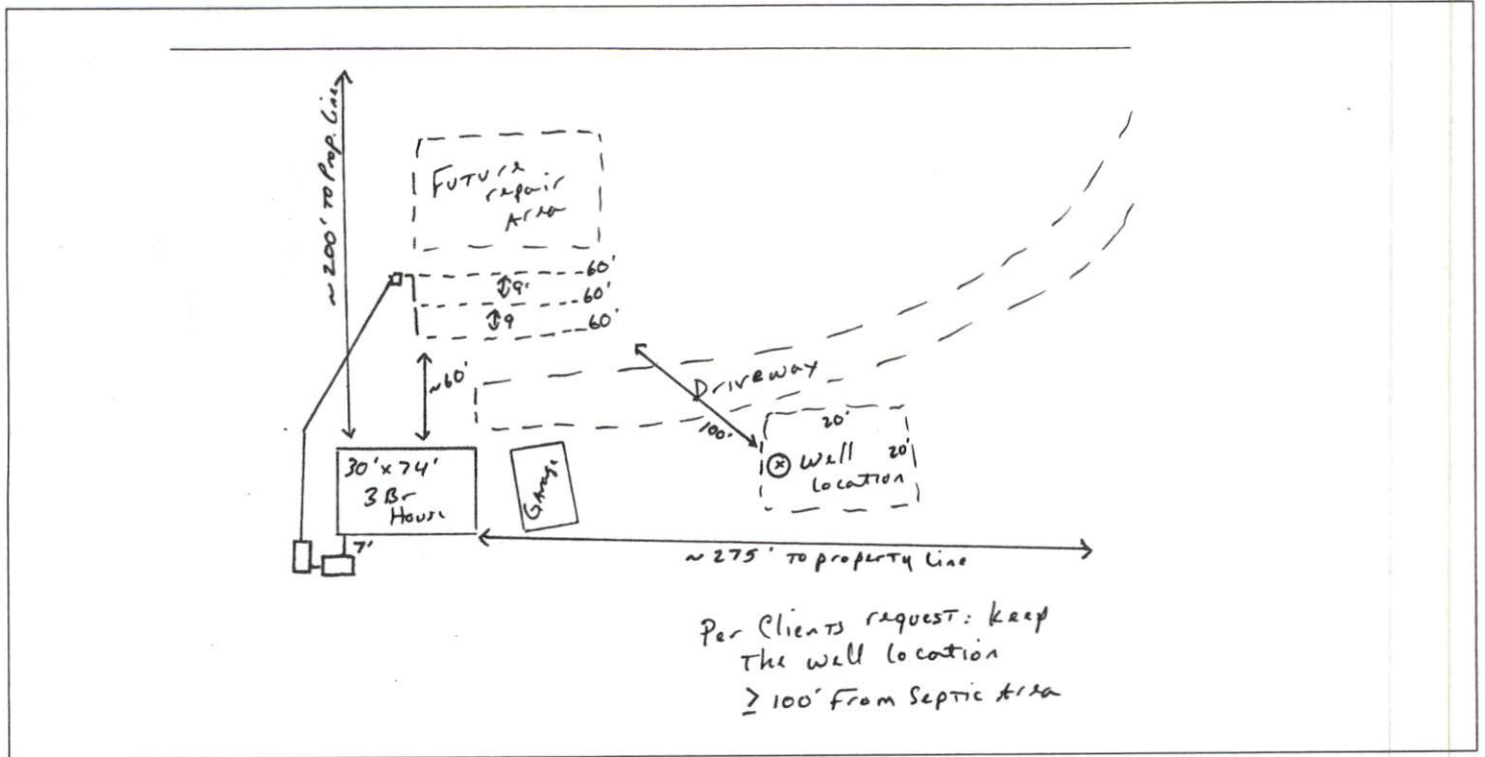 ~ 200' To Prop. Line
Future
repair
Area
60'
9'
60'
9
60'
~60'
Driveway
100'
20'
20'
Well
Location
30' x 74'
3 Br
House
Garage
7'
~ 275' To property Line
Per Clients request: keep
The well location
≥ 100' From Septic Area